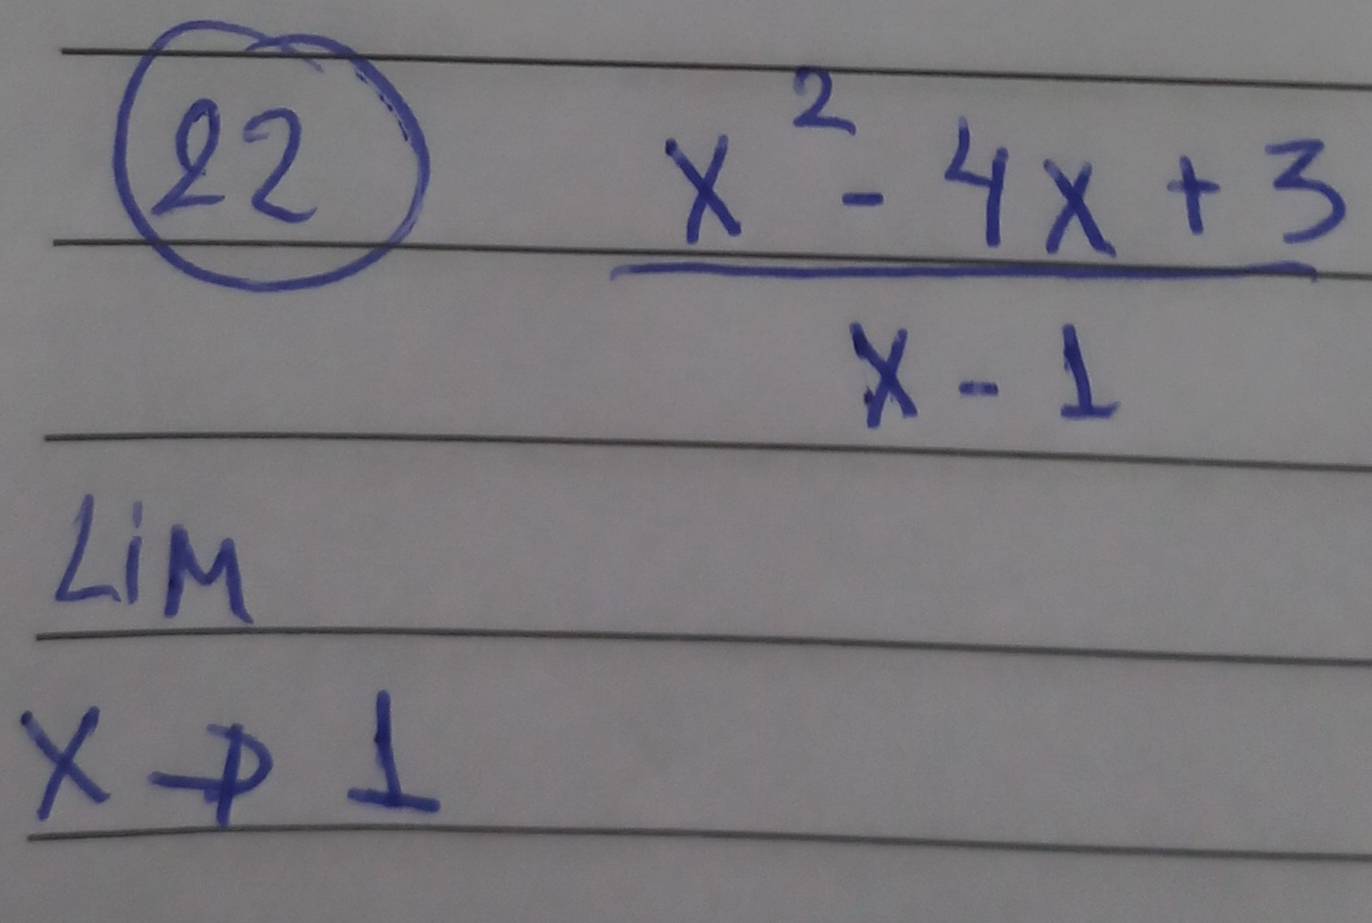 22 x² - 4x + 3
x - 1
LiM
x → 1